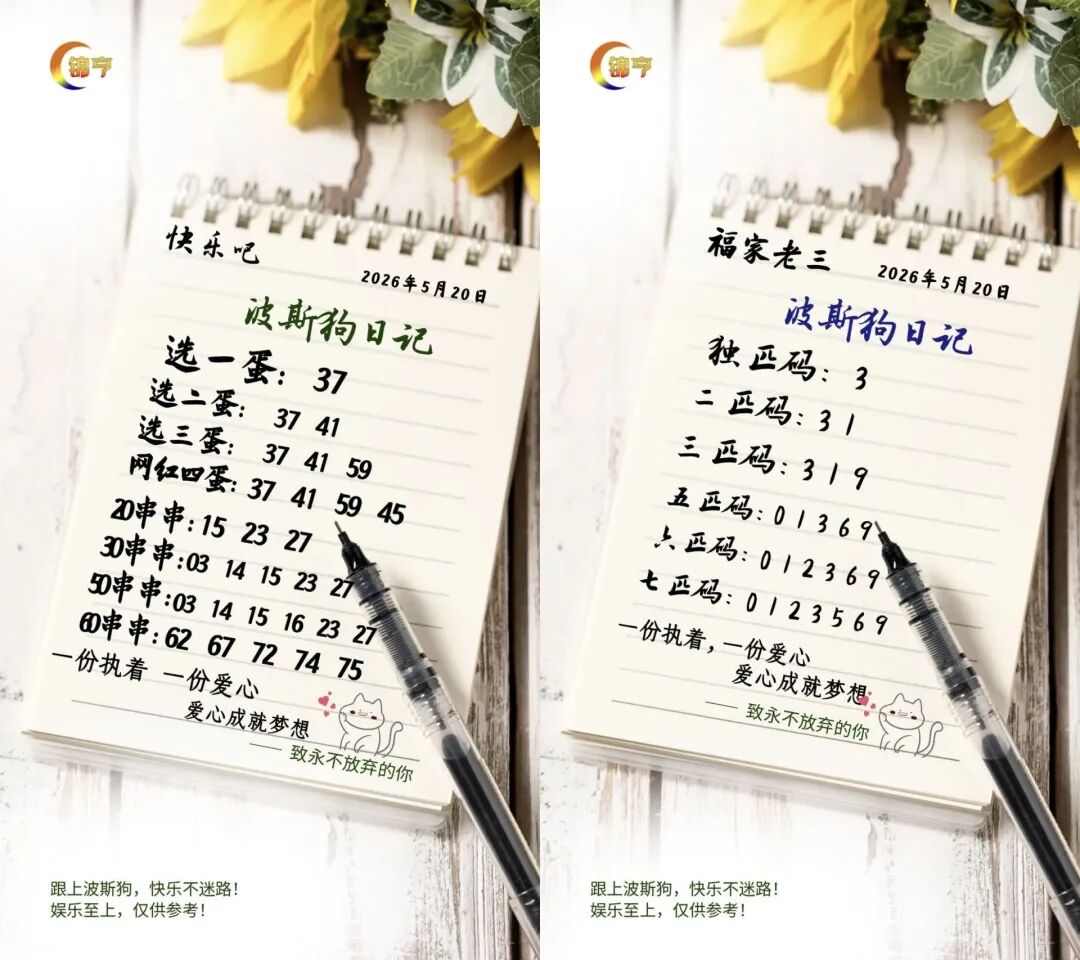 锦亨
快乐吧
2026年5月20日
波斯狗日记
选一蛋：37
选二蛋：37 41
选三蛋：37 41 59
网红四蛋：37 41 59 45
20串串：15 23 27
30串串：03 14 15 23 27
50串串：03 14 15 16 23 27
60串串：62 67 72 74 75
一份执着 一份爱心
爱心成就梦想
—— 致永不放弃的你
跟上波斯狗，快乐不迷路！
娱乐至上，仅供参考！
锦亨
福家老三
2026年5月20日
波斯狗日记
独匹码：3
二匹码：3 1
三匹码：3 1 9
五匹码：0 1 3 6 9
六匹码：0 1 2 3 6 9
七匹码：0 1 2 3 5 6 9
一份执着，一份爱心
爱心成就梦想
—— 致永不放弃的你
跟上波斯狗，快乐不迷路！
娱乐至上，仅供参考！